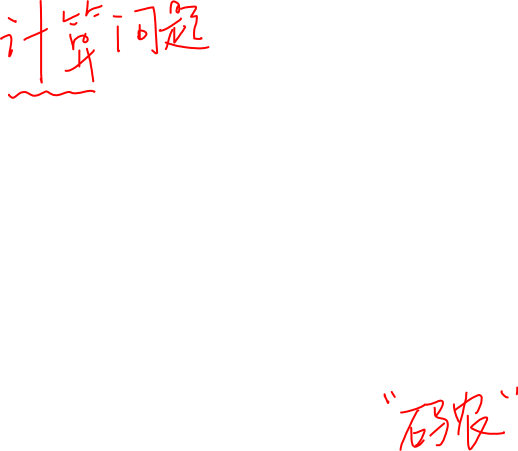 计算问题
“码农”